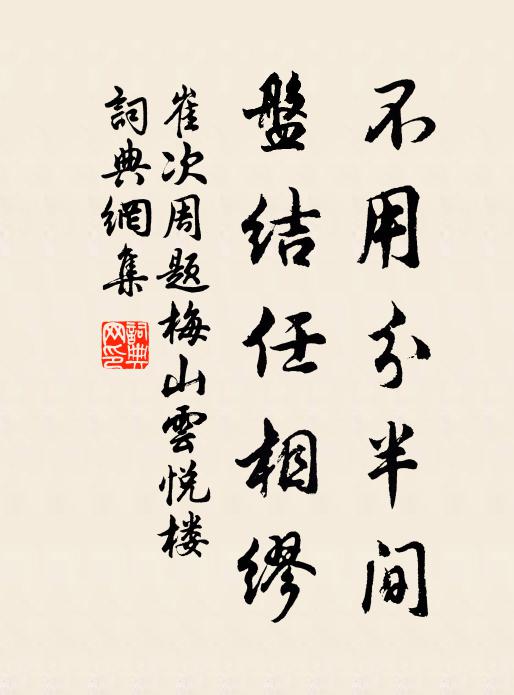 不用分半间
盤结任相繆
崔次周题梅山雲悦楼
詞典網集
詞典
网印